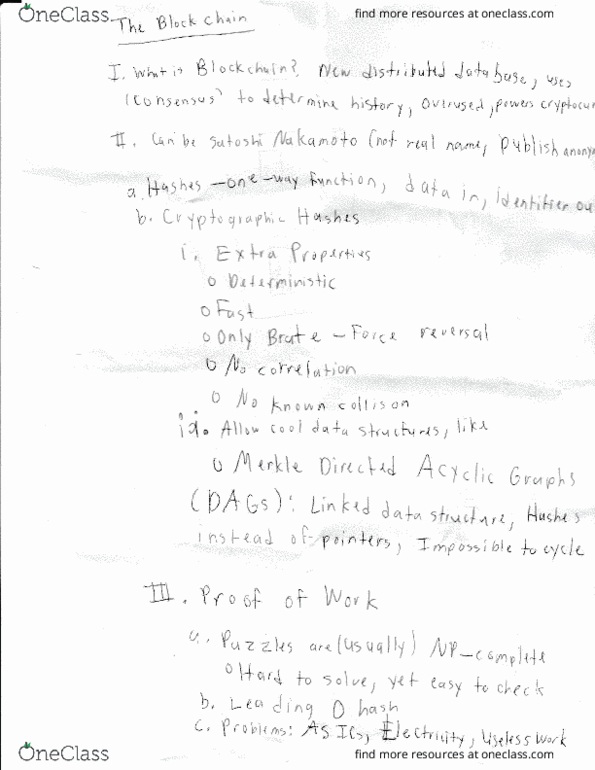 OneClass
find more resources at oneclass.com
The Blockchain
I. What is Blockchain? New distributed database, uses
"consensus" to determine history, overused, powers cryptocur
II. Can be Satoshi Nakamoto (not real name, publish anony
a. Hashes - one-way function, data in, identifier ou
b. Cryptographic Hashes
i. Extra Properties
o Deterministic
o Fast
o Only Brute-Force reversal
o No correlation
o No known collison
ii. Allow cool data structures, like
o Merkle Directed Acyclic Graphs
(DAGs): Linked data structure, Hashes
instead of pointers, Impossible to cycle
III. Proof of Work
a. Puzzles are (usually) NP-complete
o Hard to solve, yet easy to check
b. Leading 0 hash
c. Problems: ASICs, Electricity, Useless Work
OneClass
find more resources at oneclass.com